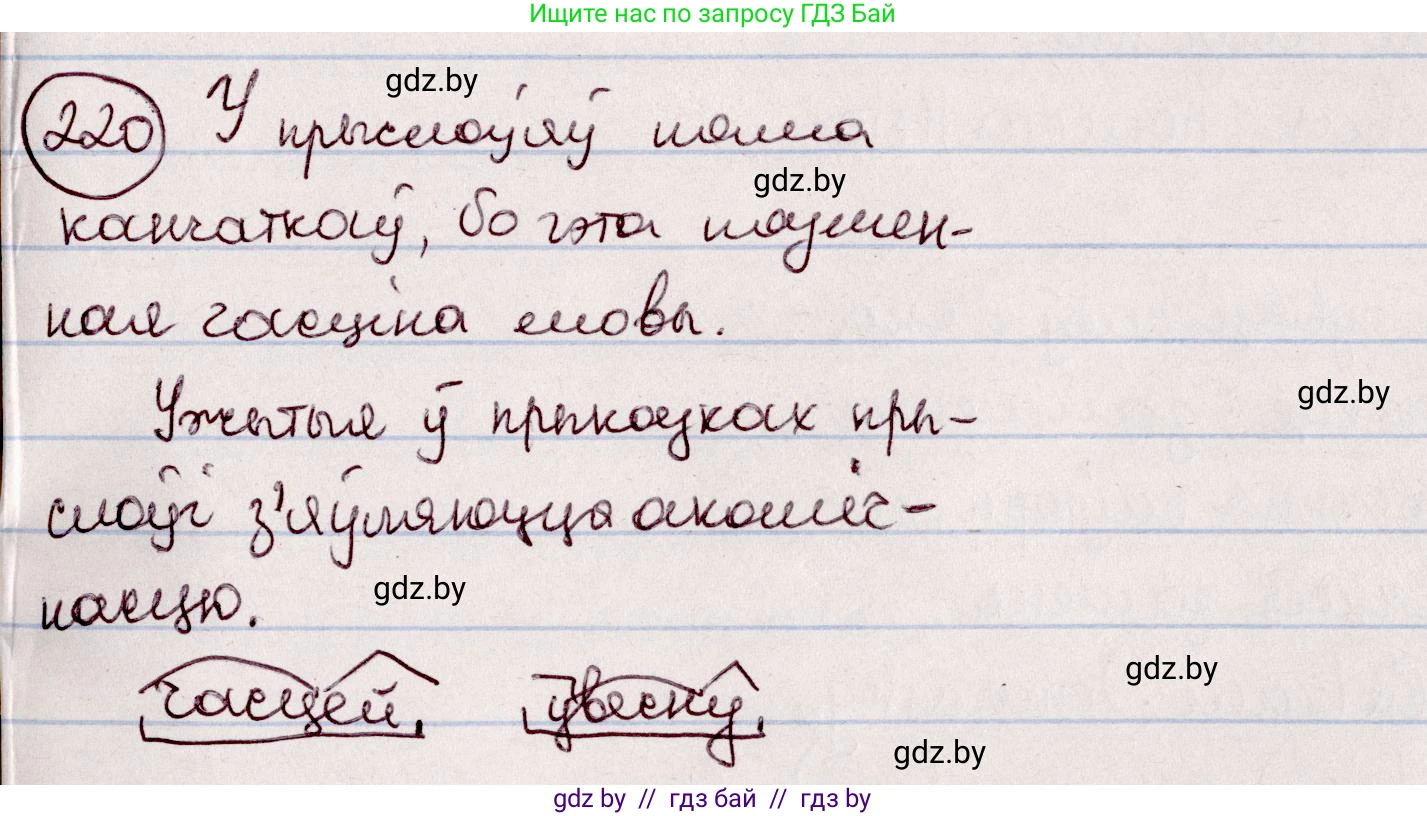 Ищите нас по запросу ГДЗ Бай
gdz.by
220 У прыслоўяў няма
gdz.by
канчаткаў, бо гэта нязмен-
ная часціна мовы.
gdz.by
Ужытыя ў прыказках пры-
слоўі з'яўляюцца акаліч-
насцю.
gdz.by
часцей, увесну,
gdz.by
gdz.by
gdz by // гдз бай // гдз by